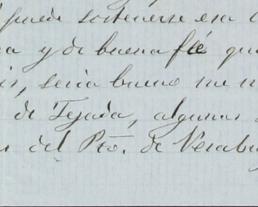 puede sostenerse esa
y de buena fé que
is, seria bueno me
de Tejada, algunos
del Pto. de Verabu